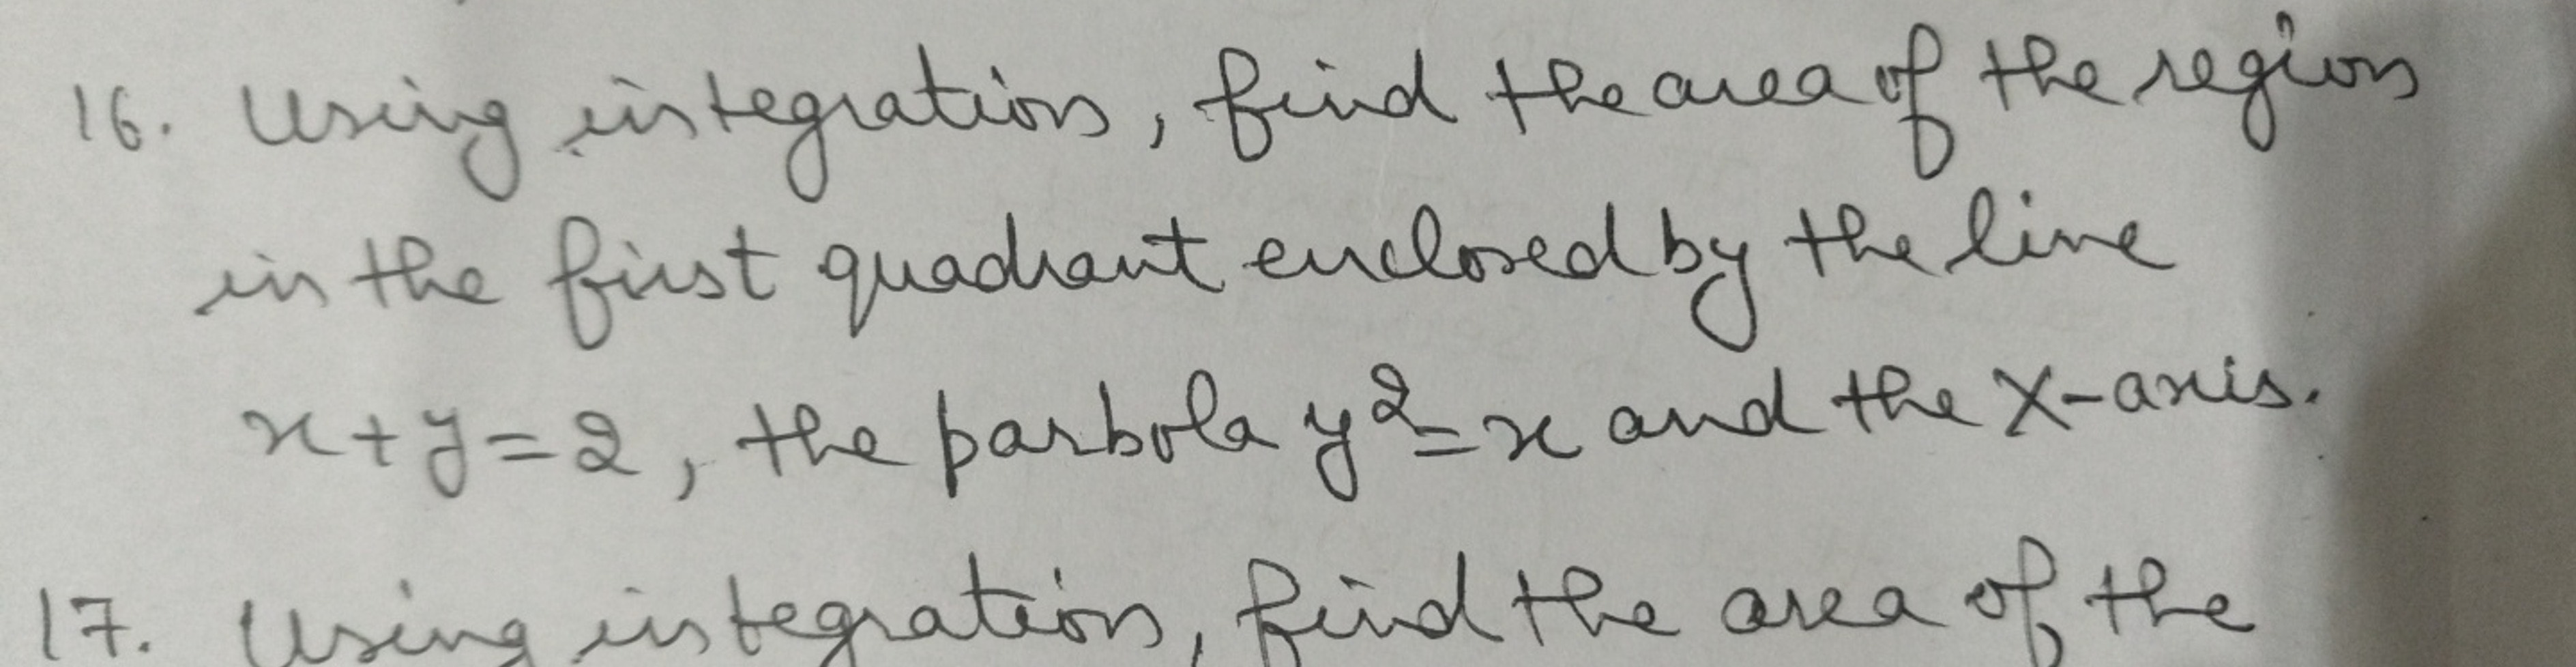 16. Using integration, find the area of the region
in the first quadrant enclosed by the line
x+y=2, the parbola y²=x and the X-axis.
17. Using integration, find the area of the